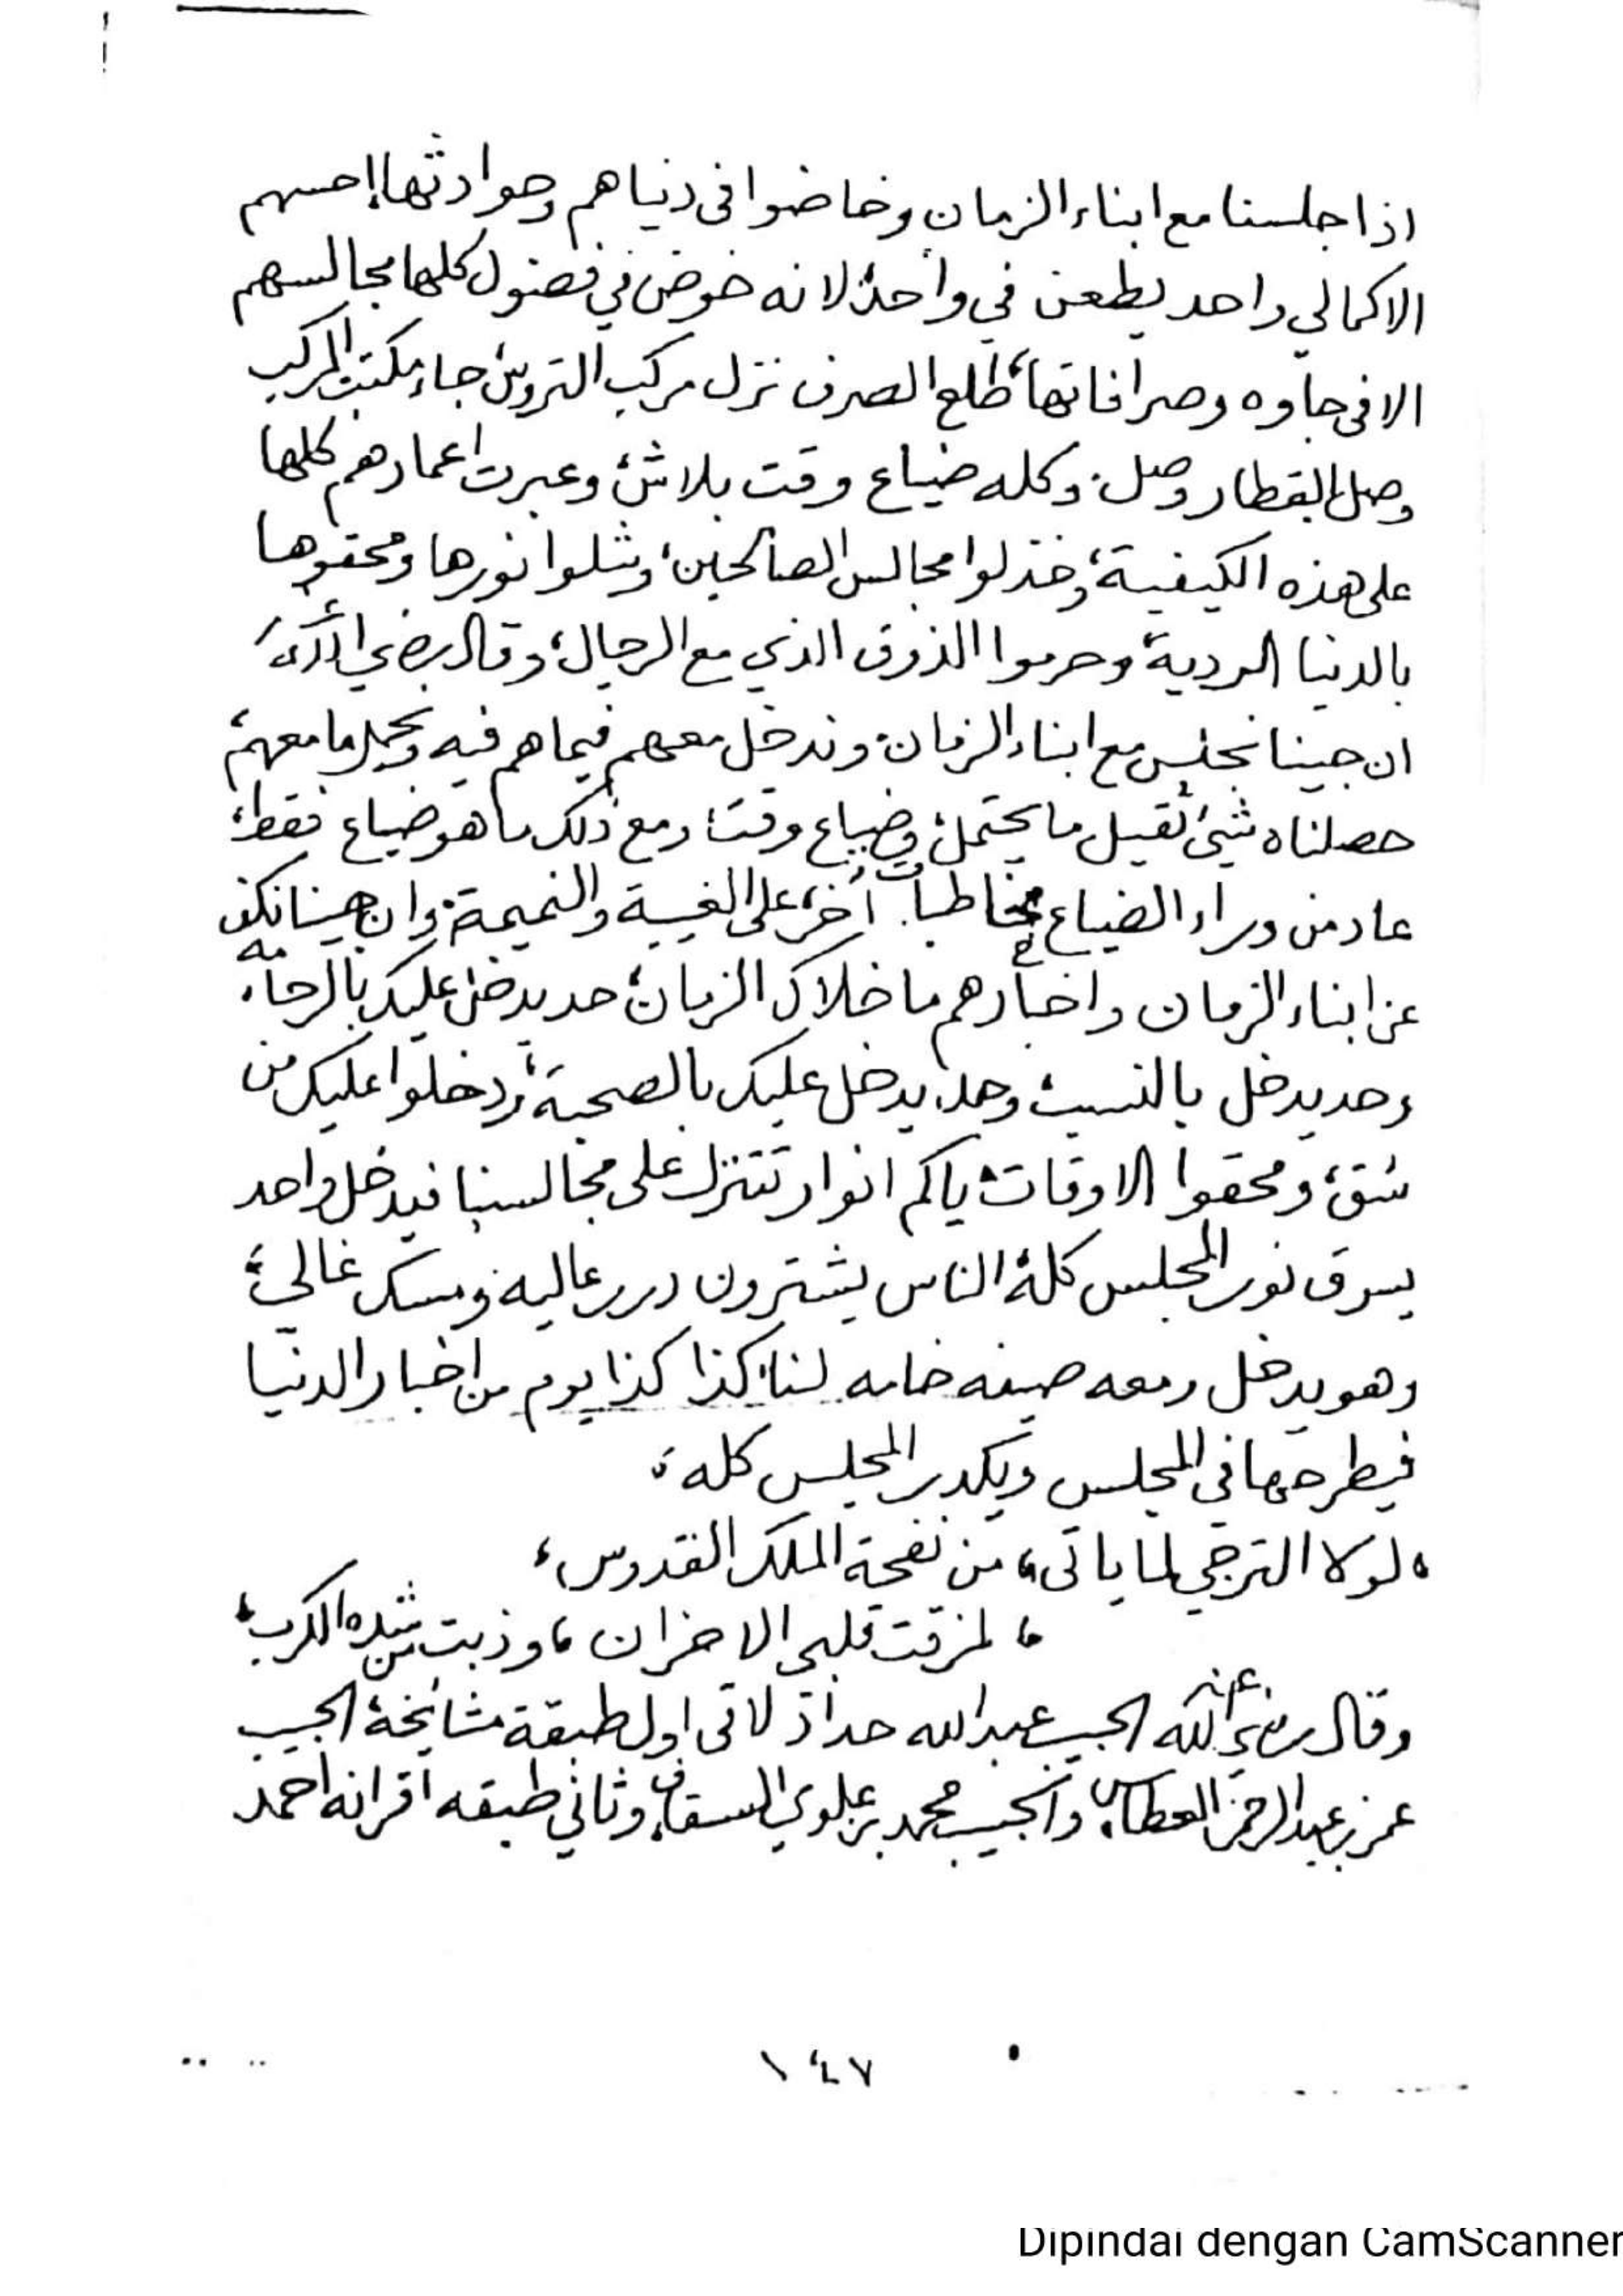 اذا جلسنا مع ابناء الزمان وخاضوا في دنياهم وحوادثها احسهم
الا كما لي واحد يطعن في واحد، لانه خوض في فضول كلها مجالسهم
الا في جاوه وصرافاتها، طلع الصرف نزل مركب التروس جاء مكتب المركب
وصل القطار وصل. وكله ضياع وقت بلاش، وعبرت اعمارهم كلها
على هذه الكيفية، وخذلوا مجالس الصالحين، وشلوا نورها ومحقوها
بالدنيا الردية وحرموا الذوق الذي مع الرجال، وقال رضي الله عنه
ان جينا نجلس مع ابناء الزمان، وندخل معهم فيما هم فيه ونحمل ما معهم،
حصلناه شيئ ثقيل ما يحتمل، وضياع وقت، ومع ذلك ما هو ضياع فقط،
عاد من وراء الضياع مخاطبات أخر، على الغيبة والنميمة، وان جينا نكف
عن ابناء الزمان واخبارهم ما خلاك الزمان، حد يدخل عليك بالرحامه
وحد يدخل بالنسب، وحد يدخل عليك بالصحبة، دخلوا عليك من
شق، ومحقوا الاوقات، ياكم انوار تتنزل على مجالسنا فيدخل واحد
يسرق نور المجلس كله، الناس يشترون درر عاليه ومسك غالي،
وهو يدخل ومعه صيفه خامه لنا كذا كذا يوم من اخبار الدنيا
فيطرحها في المجلس ويكدر المجلس كله،
، لولا الترجي لما ياتي، من نفحة الملك القدوس،
، لمزقت قلبي الاحزان، وذبت من شده الكرب،
وقال رضي الله عنه الحبيب عبدالله حداد لاقى اول طبقة مشائخه، الحبيب
عمر بن عبدالرحمن العطاس، والحبيب محمد بن علوي السقاف، وثاني طبقه اقرانه احمد
١٤٧
Dipindai dengan CamScanner